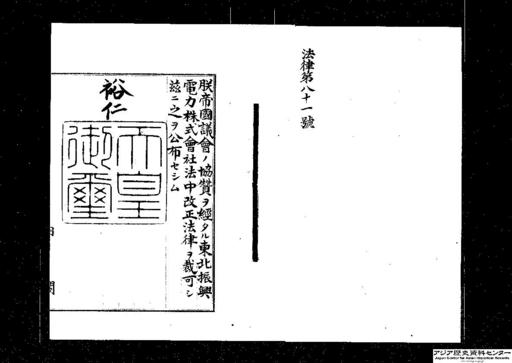 法律第八十一號
朕帝國議會ノ協贊ヲ經タル東北振興
電力株式會社法中改正法律ヲ裁可シ
玆ニ之ヲ公布セシム
裕仁
天皇
御璽
内閣
アジア歴史資料センター
Japan Center for Asian Historical Records